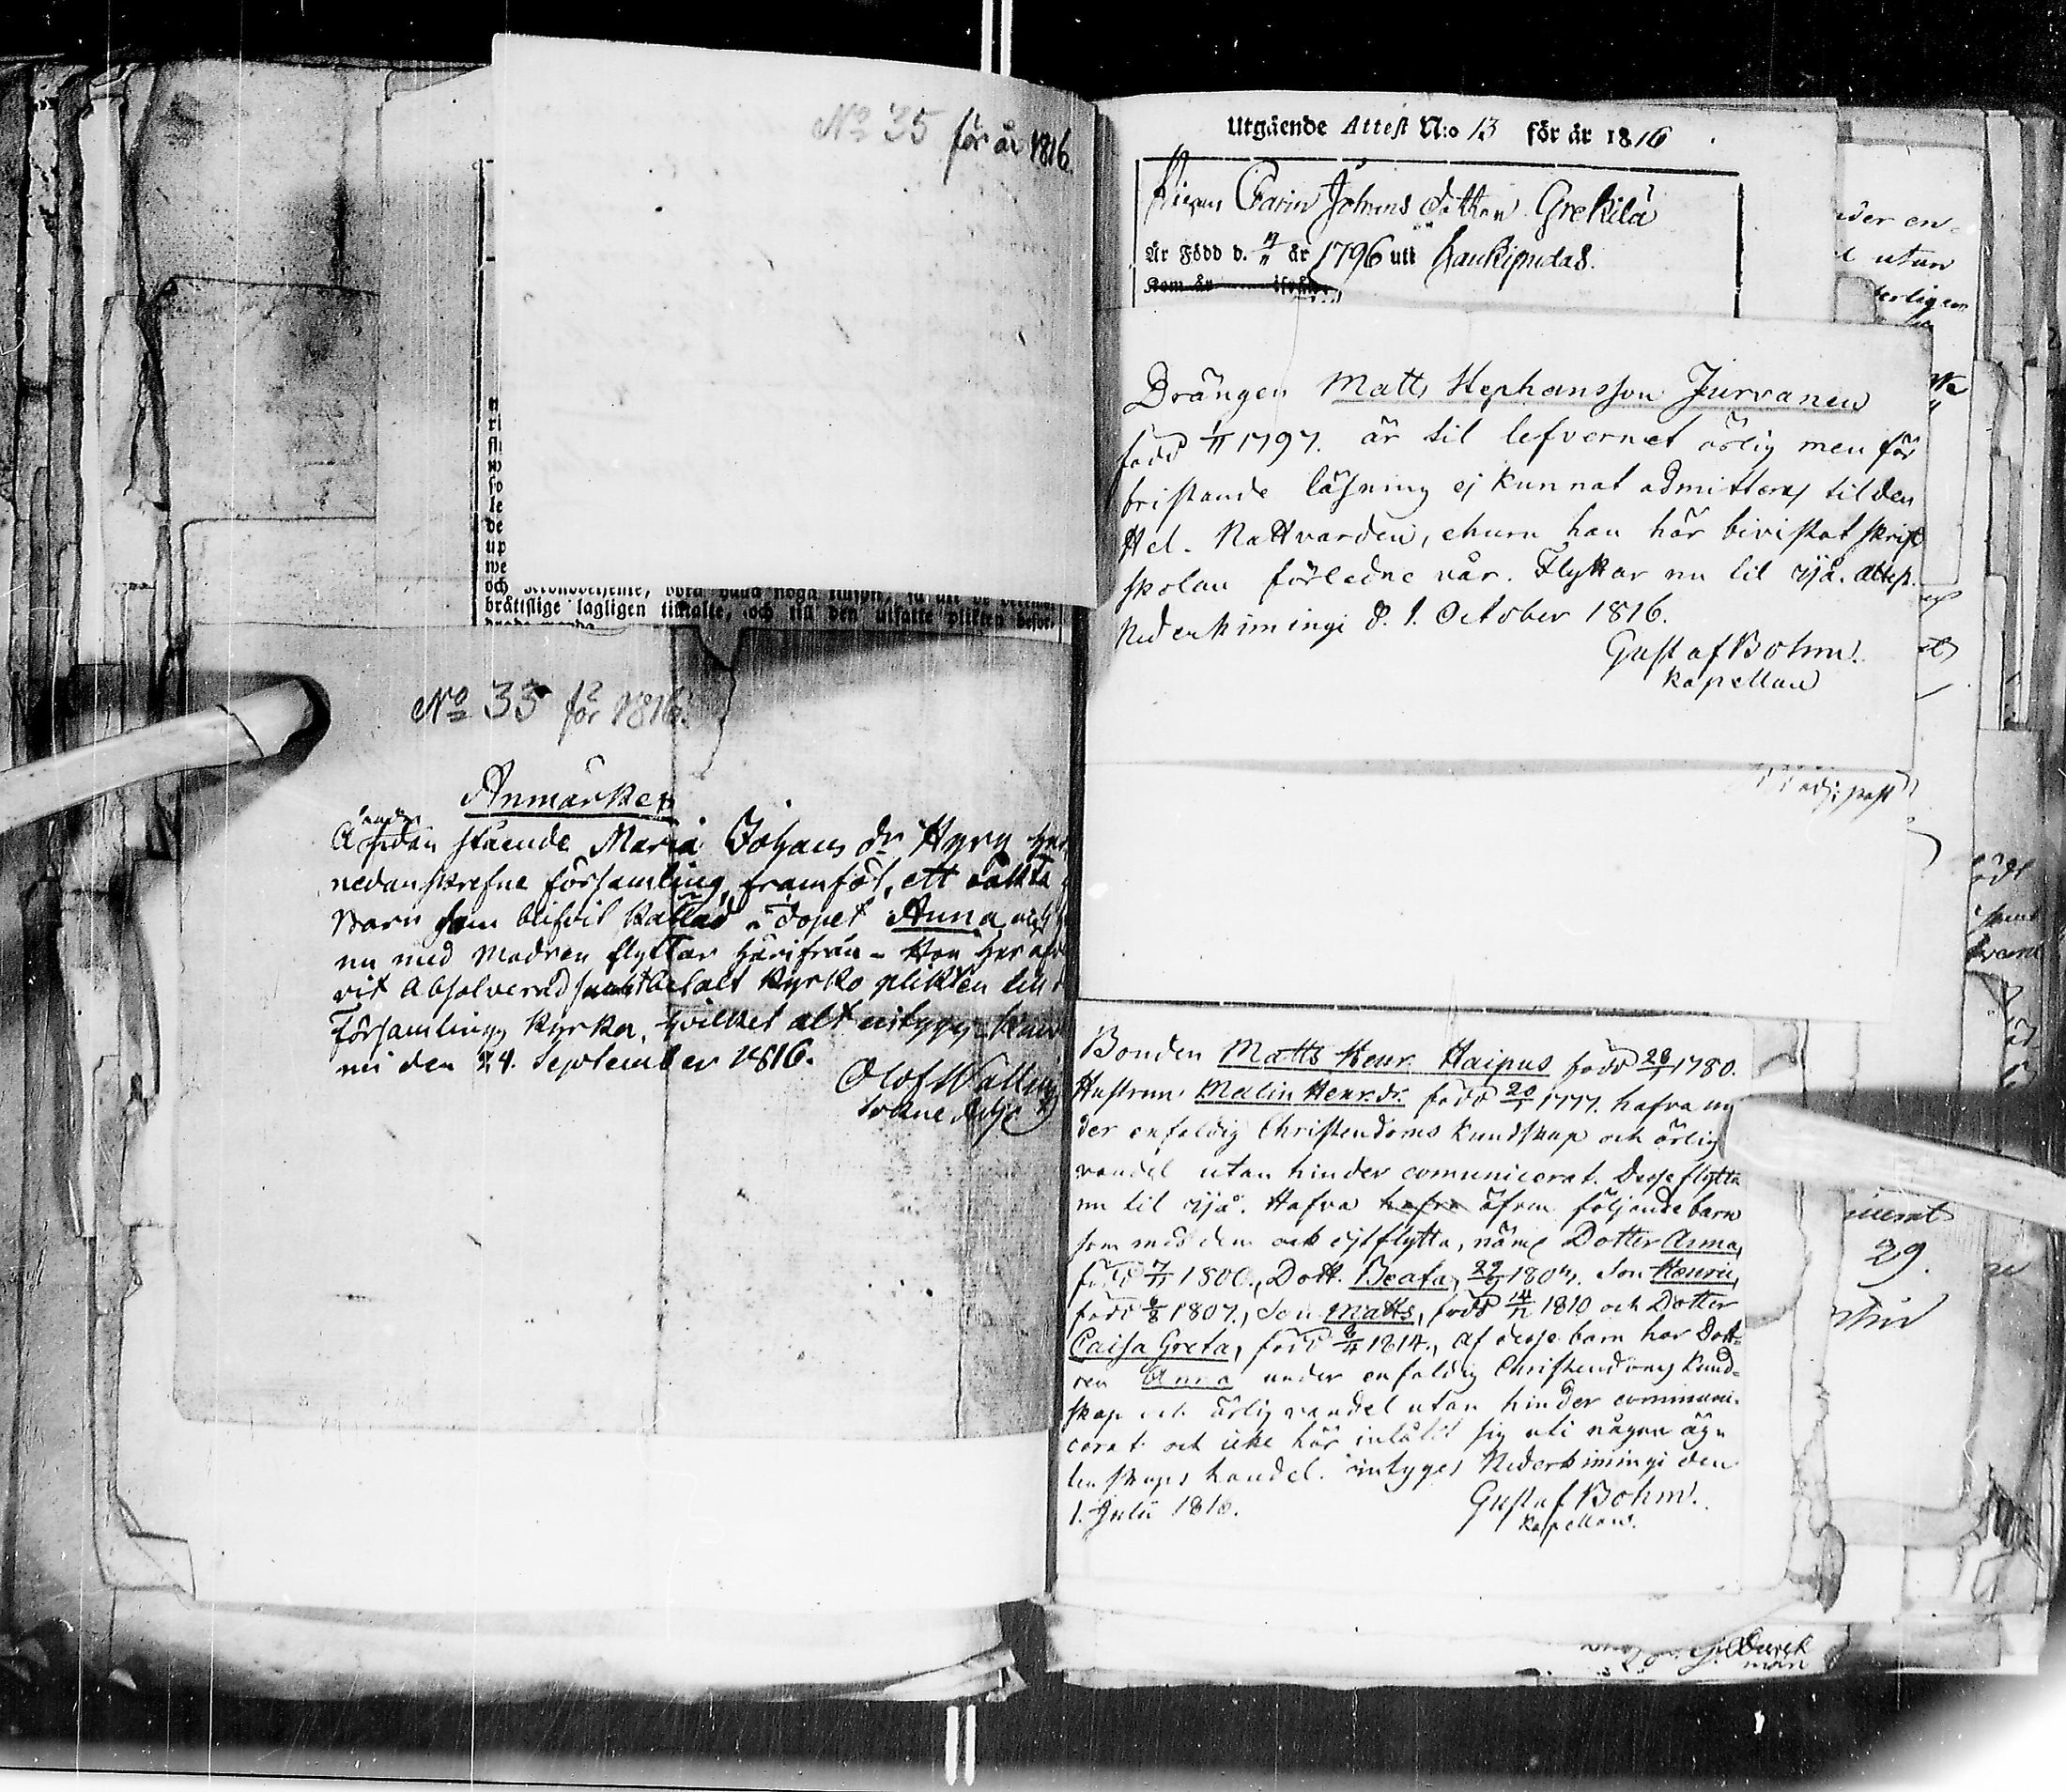 No 35 för år 1816.
och
bråtislige lagligen tilltalte, och till den utsatte plikten befor-
No 33 för 1816.
Anmärkes
Å andra sidan stående Maria Johans dr Hyry har
nedanskrefne församling, framfödt, ett oäkta
Barn som blifvit kallad i Dopet Anna, och
nu med Modren flyttar härifrån - Hon har
vit Absolverad samt betalt Kyrko plikten till
Församlings Kyrka, hvilket alt intygas
mi den 24. September 1816.
Olof Wallin
Sockne Adj:
Utgående Attest N:o 13 för år 1816
Pigan Carin Johans dotter Grekilä
Är Född d. 17/11 år 1796 uti Haukipudas.
Kom år ifrån
Drängen Matts Stephansson Jurvanen
född 1/11 1797. är til lefvernet ärlig men för
bristande läsning ej kunnat admitteras til den
Hel. Nattvarden, ehuru han här bivistat skrift
skolan förledne vår. Flyttar nu til Ijå. Attest.
Nederkimingi d. 1. October 1816.
Gustaf Bohm.
Kapellan
Bonden Matts Henr. Haipus född 28/1 1780.
Hustrun Malin Henr.dr. född 20/1 1777. hafva un
der enfaldig Christendoms kundskap och ärlig
vandel utan hinder comunicerat. Desse flytta
nu til Ijå. Hafva hafva äfven följande barn
som med dem och ditflytta, näml Dotter Anna,
född 7/11 1800., Dott. Beata, 29/9 1804. Son Henric,
född 6/8 1807., Son Matts, född 14/12 1810 och Dotter
Caisa Greta, född 8/4 1814., Af desse barn har Dott-
ren Anna under enfaldig Christendoms kund-
skap och ärlig vandel utan hinder communi-
cerat och icke här inlåtit sig uti någon äg-
tenskaps handel. intyges Nederkimingi den
1. Julii 1816.
Gustaf Bohm.
Kapellan.
ider en-
l utan
29.